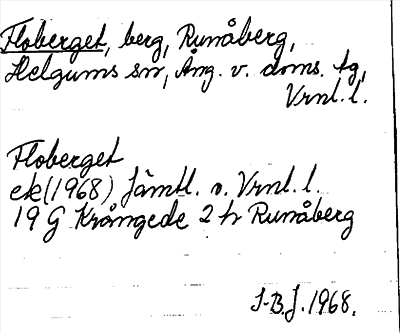 Floberget, berg, Runåberg,
Helgums sn, Ång. v. doms. tg,
Vrnl. l.
Floberget
ek (1968) Jämtl. o. Vrnl. l.
19 G Krångede 2 h Runåberg
S-B.J. 1968.